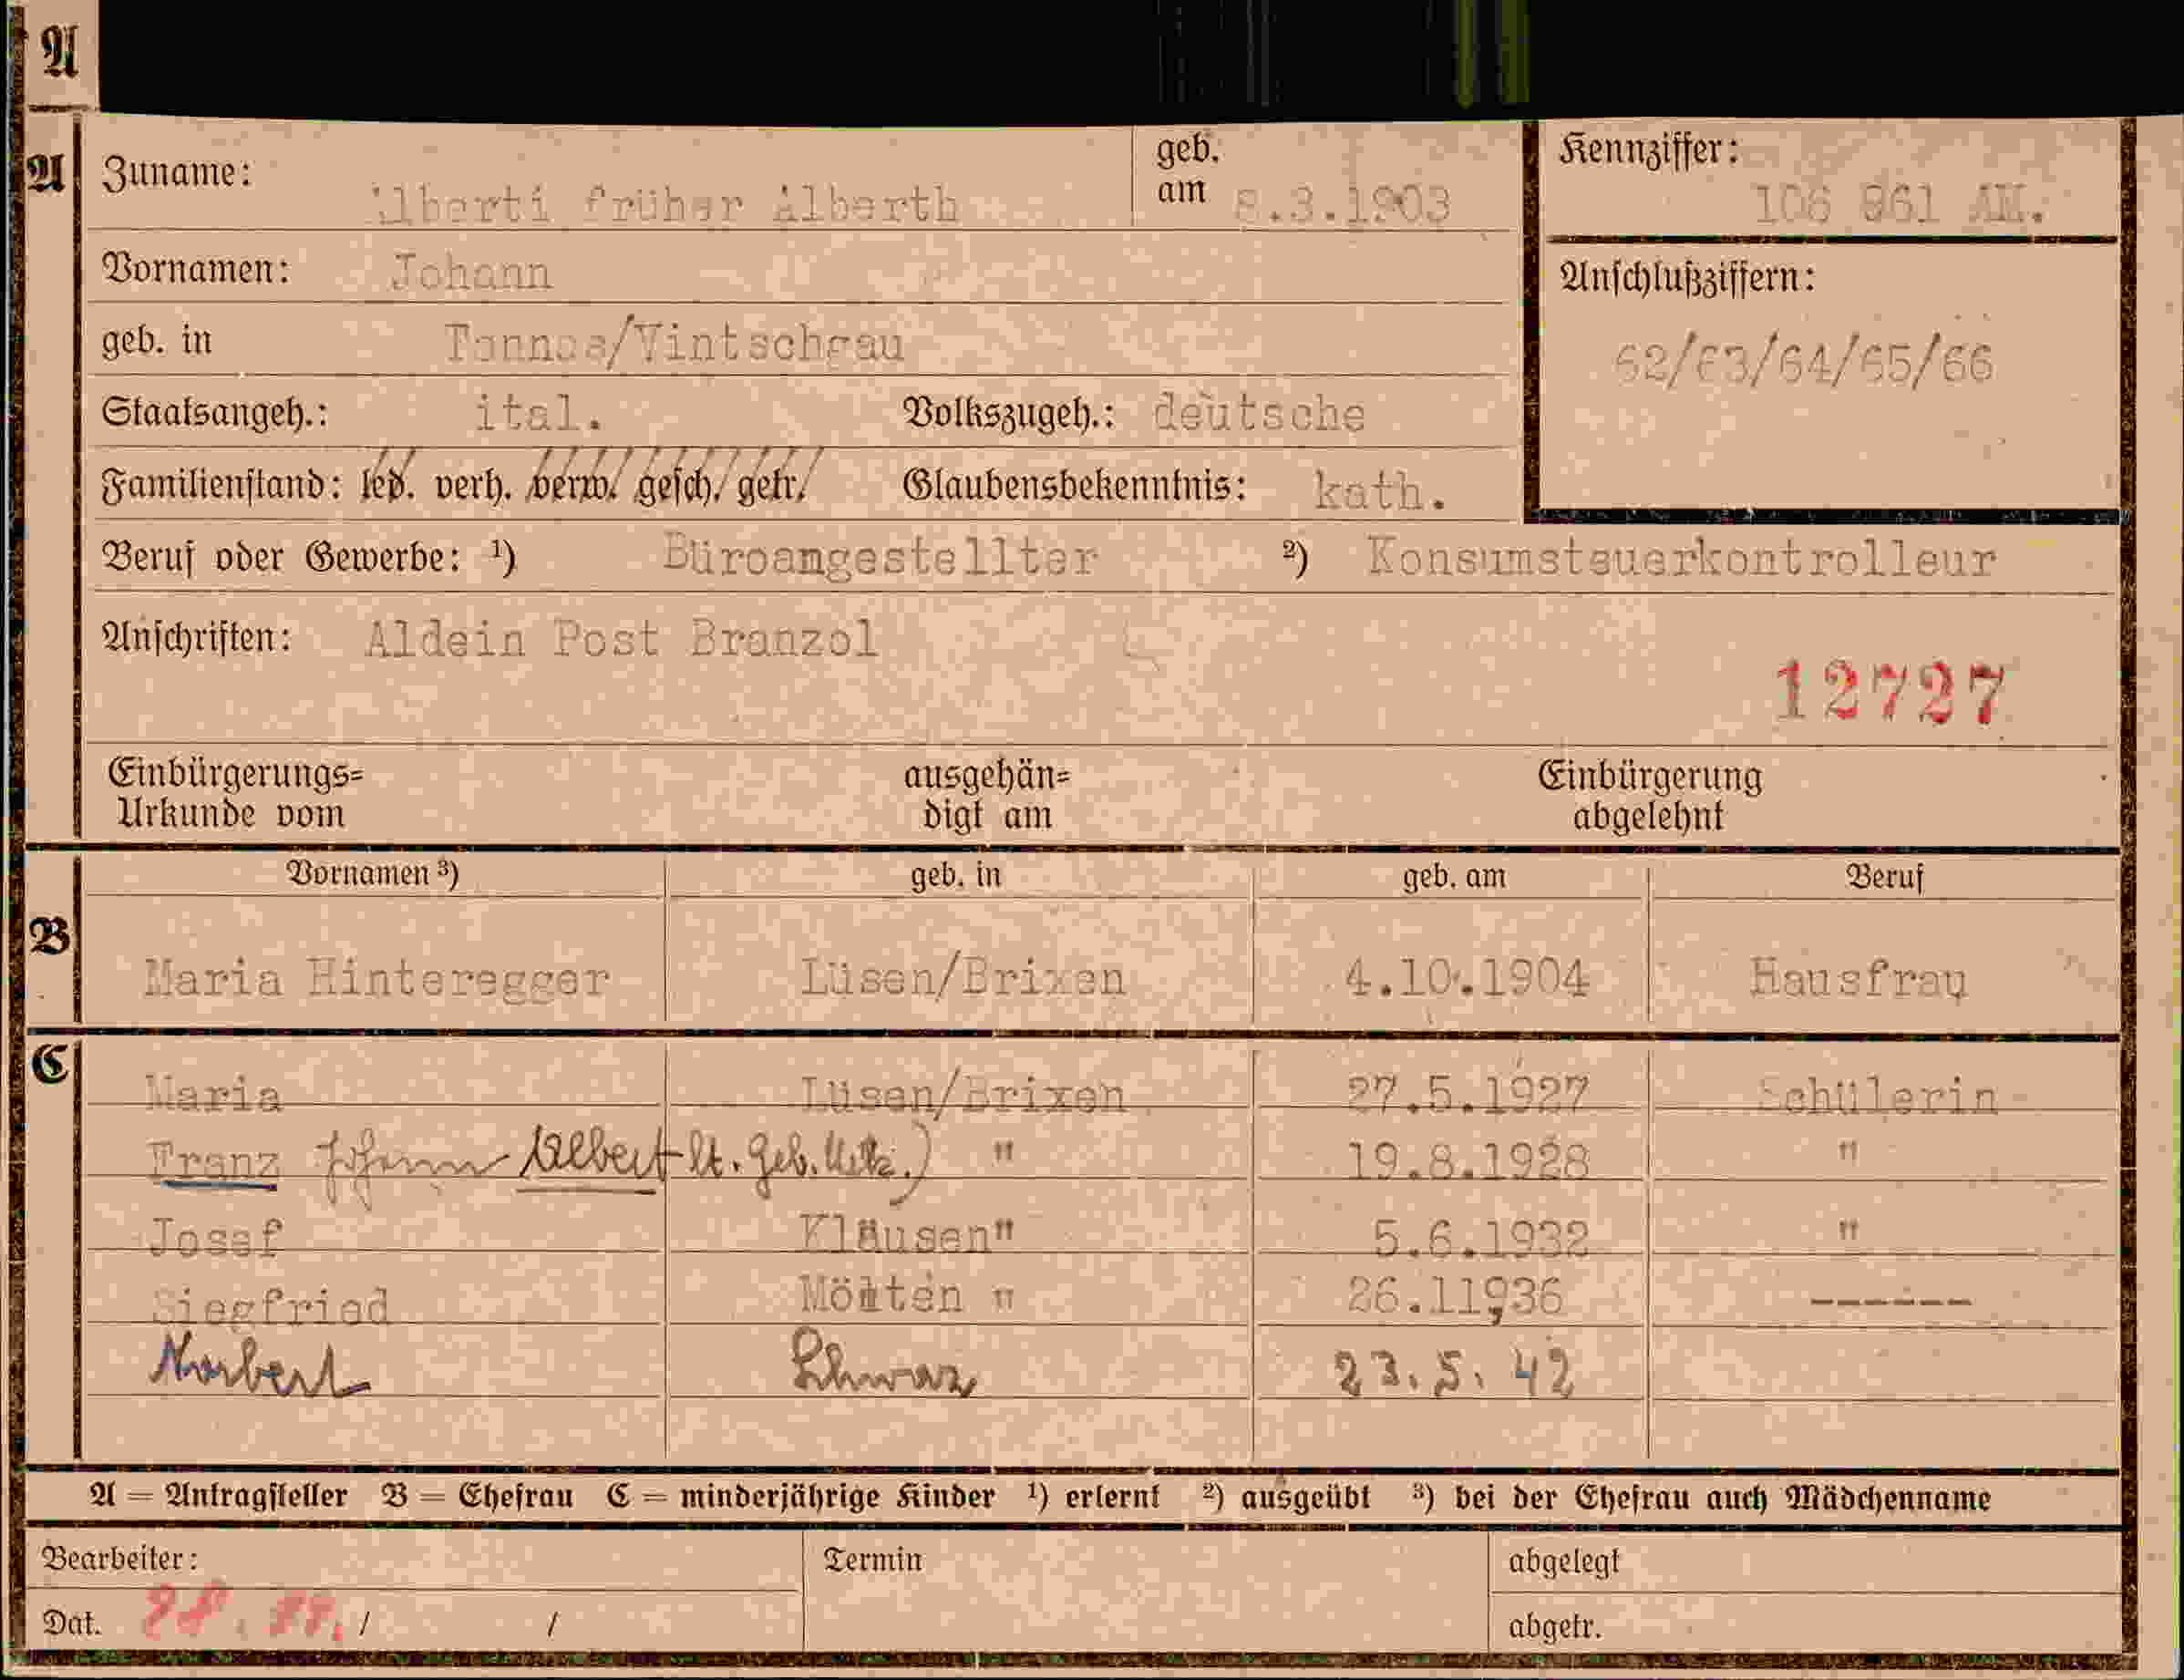 A
A
Zuname: Alberti früher Alberth geb. am 8.3.1903
Kennziffer: 106 961 AM.
Vornamen: Johann
Anschlußziffern:
geb. in Tannas/Vintschgau
62/63/64/65/66
Staatsangeh.: ital. Volkszugeh.: deutsche
Familienstand: led. verh. verw. gesch. getr. Glaubensbekenntnis: kath.
Beruf oder Gewerbe: ¹) Büroangestellter ²) Konsumsteuerkontrolleur
Anschriften: Aldein Post Branzol
12727
Einbürgerungs= ausgehän= Einbürgerung
Urkunde vom digt am abgelehnt
Vornamen ³) geb. in geb. am Beruf
B
Maria Hinteregger Lüsen/Brixen 4.10.1904 Hausfrau
C
Maria Lüsen/Brixen 27.5.1927 Schülerin
Franz Johann Albert lt. Geb. Urk.) " 19.8.1928 "
Josef Klausen" 5.6.1932 "
Siegfried Mölten " 26.11936 ------
Norbert Schwaz 23.5.42
A = Antragsteller B = Ehefrau C = minderjährige Kinder ¹) erlernt ²) ausgeübt ³) bei der Ehefrau auch Mädchenname
Bearbeiter: Termin abgelegt
Dat. / / abgetr.